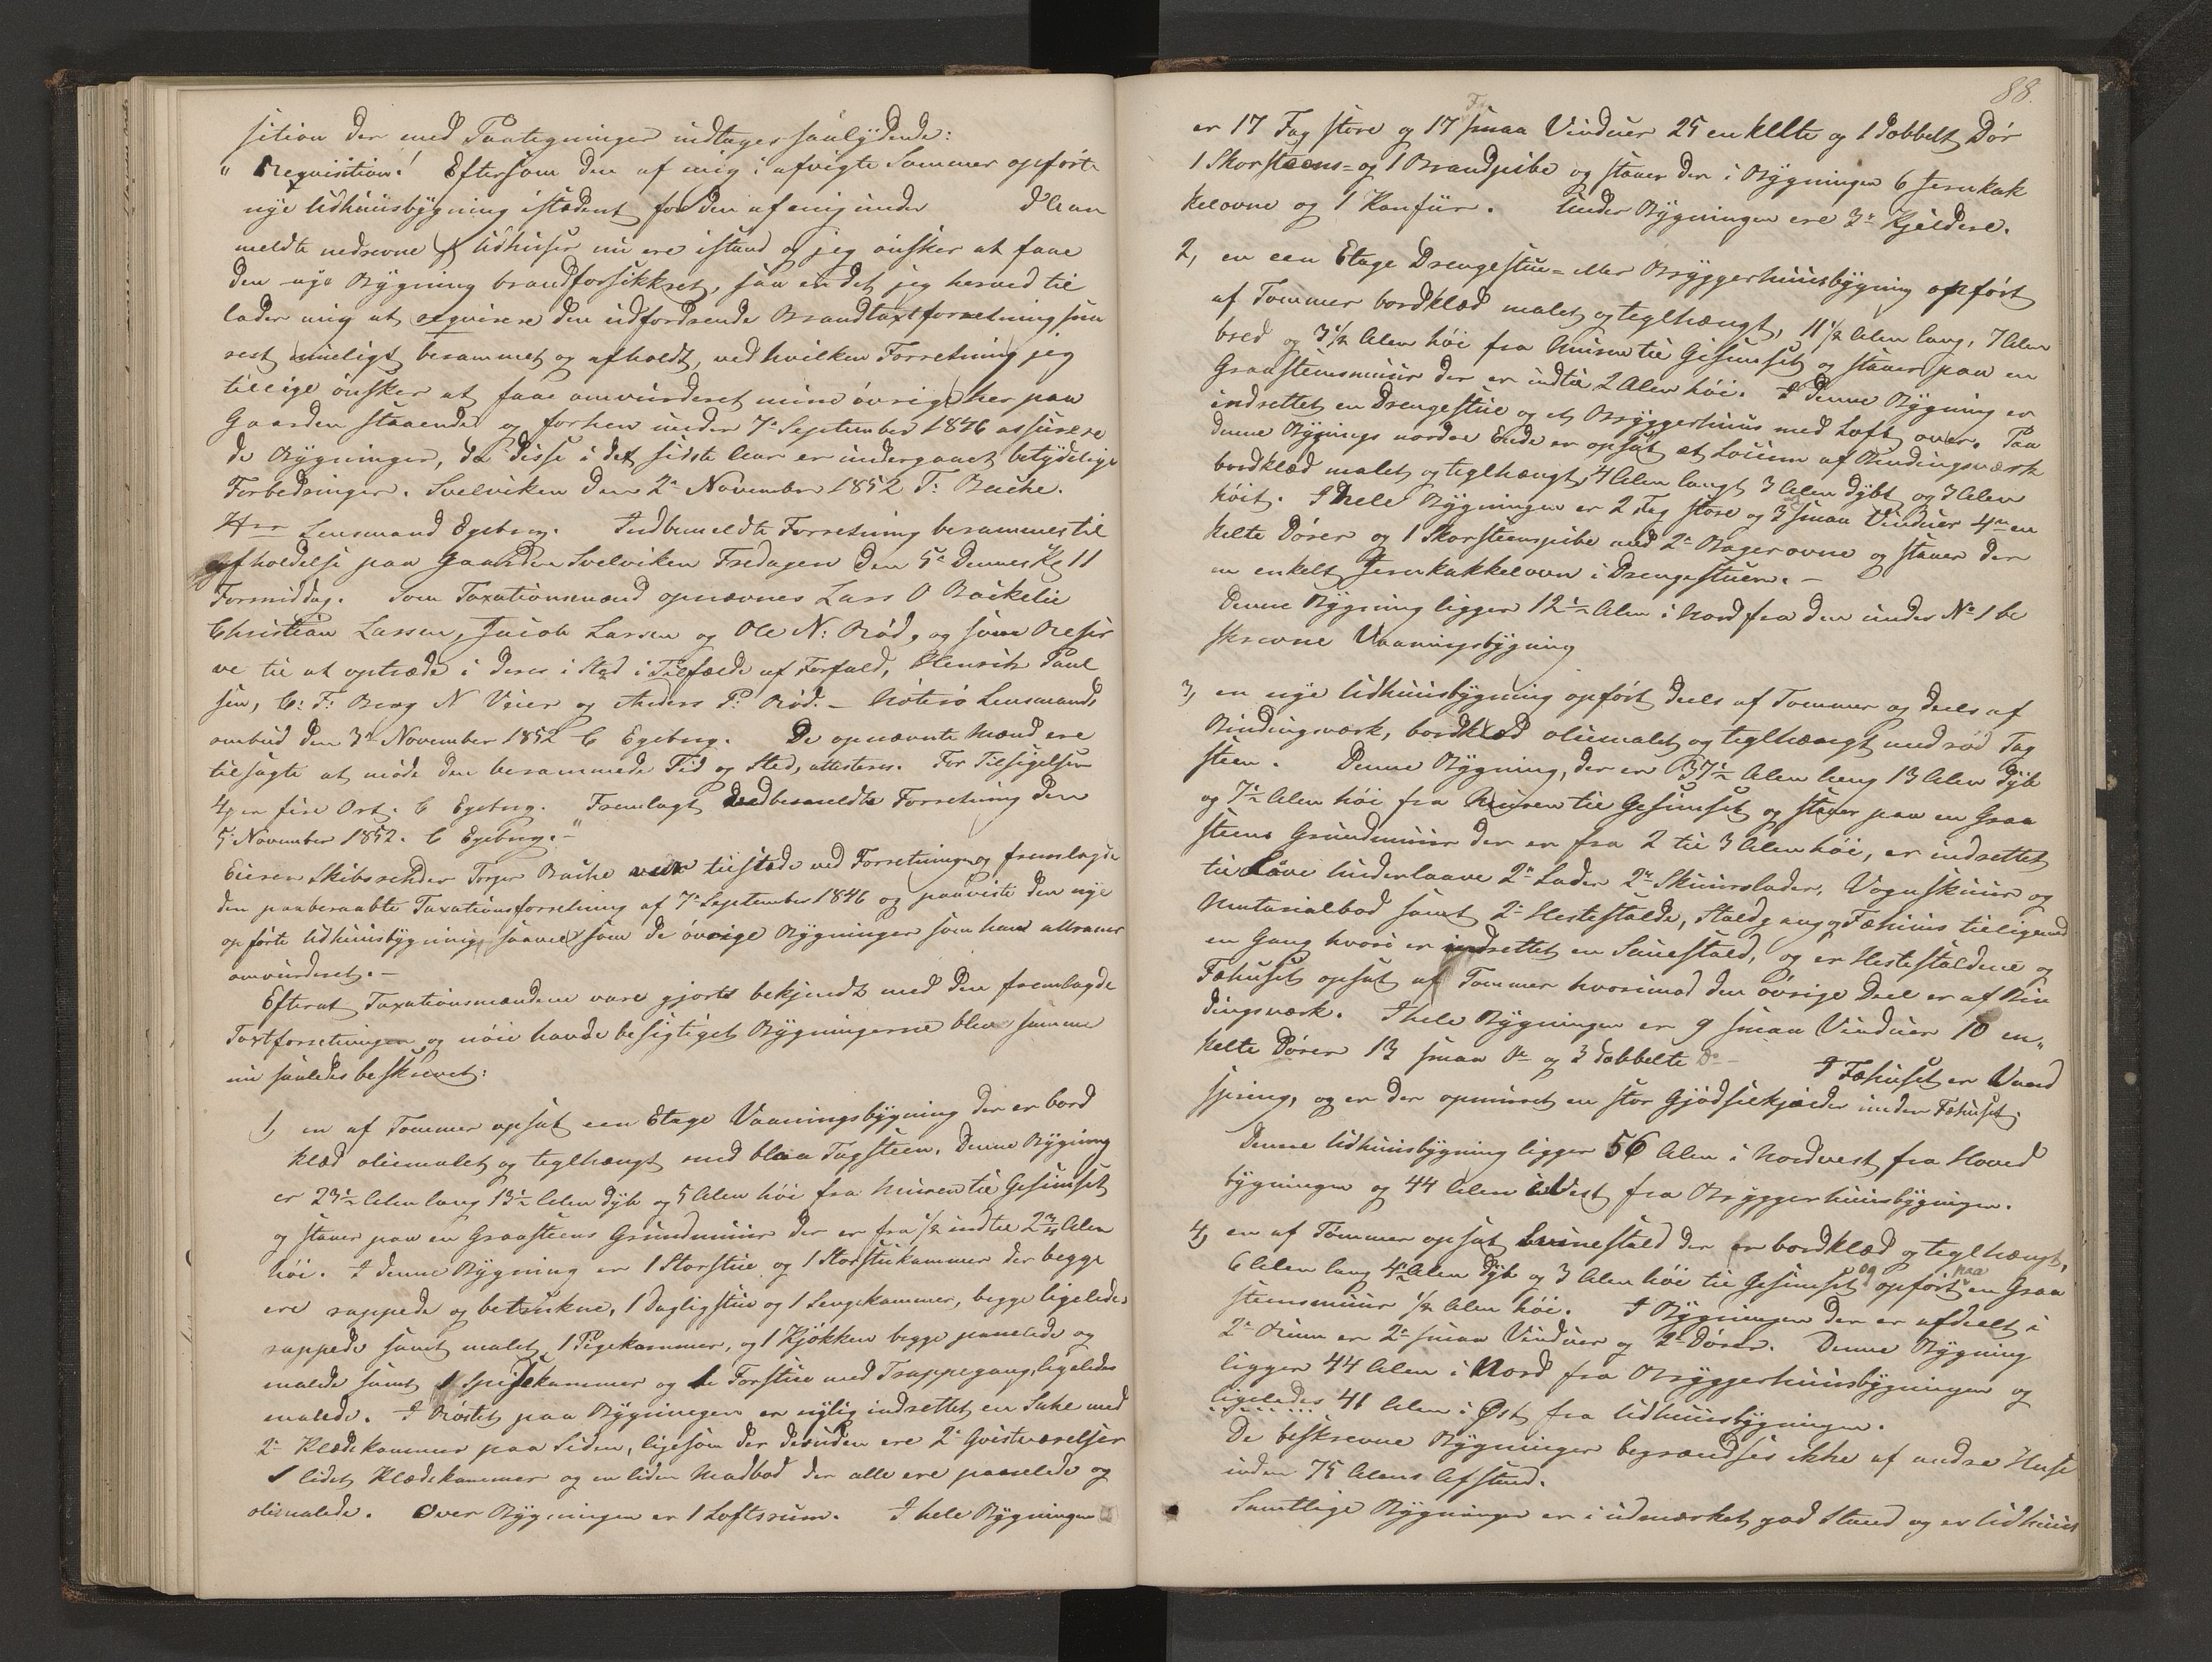 sition der med Paategninger indtages saalydende:
"Reqvisition! Eftersom den af mig i afvigte Sommer opførte
nye Udhuusbygning istedent for den af mig under d' Aar
meldte nedrevne Udhuser nu ere istand og jeg ønsker at faae
den nye Bygning brandforsikkret, saa er det jeg herved til
lader mig at reqvirere den udfordrende Brandtaxtforretning sna
rest mueligt berammet og afholdt, ved hvilken Forretning jeg
tillige ønsker at faae omvurderet mine øvrige her paa
Gaarden staaende og forhen under 7de September 1846 assurere
de Bygninger, da disse i det sidste Aar er undergaaet betydelige
Forbedringer. Svelviken den 2den November 1852 T: Bache.
Hrr Lensmand Egeberg. Indbemeldte Forretning berammes til
Afholdelse paa Gaarden Svelviken Fredagen den 5te Dennes Kl 11
Formiddag. Som Taxationsmænd opnævnes Lars O Backelie
Christian Larsen, Jacob Larsen og Ole N: Rød, og som Reser
ve til at optræde i deres i Sted i Tilfælde af Forfald, Henrik Paul
sen, C: F: Berg N Veier og Anders P: Rød. – Lensmands
ombud den 3de November 1852 C Egeberg. De opnævnte Mænd ere
tilsagte at møde den berammede Tid og Sted, attesteres. For Tilsigelsen
4 er fire Ort. C Egeberg. Fremlagt Indbemeldte Forretning den
5 November 1852. C Egeberg. –"
Eieren Skibsrehder Torger Bache var tilstede ved Forretningen og fremlagde
den paaberaabte Taxationsforretning af 7de September 1846 og paaviste den nye
opførte Udhuusbygning, saavelsom de øvrige Bygninger som han attraaer
omvurderet. –
Efterat Taxationsmændene vare gjorte bekjendt med den fremlagde
Taxtforretningen og nøie havde besigtiget Bygningerne blev samme
nu saaledes beskrevet:
1, en af Tømmer opsat een Etage Vaaningsbygning der er bord
klæd oliemalet og teglhængt med blaa Tagsteen. Denne Bygning
er 23½ Alen lang 13½ Alen dyb og 5 Alen høi fra Muren til Gesimset
og staaer paa en Graasteens Grundmuur der er fra ½ indtil 2¾ Alen
høi. I denne Bygning er 1 Storstue og 1 Storstukammer der begge
ere rappede og betrukne, 1 Dagligstue og 1 Sengekammer, begge ligeledes
rappede samt malet, 1 Pigekammer, og 1 Kjøkken begge panelede og
malede samt 1 Spisekammer og 1 Forstue med Trappegang, ligeledes
malede. I Røstet paa Bygningen er nylig indrettet en Sahl med
2de Klædekammer paa Siden, ligesom der desuden ere 2de Qvistværelser
1 lidet Klædekammer og en liden Madbod der alle ere panelede og
oliemalede. Over Bygningen er 1 Loftsrum. I hele Bygningen
88.
er 17 Fag store og 17 Fg smaa Vinduer 25 enkelte og 1 dobbelt Dør
1 Skorsteens= og 1 Brandpibe og staaer der i Bygningen 6 Jernkak
kelovne og 1 Komfuir. Under Bygningen ere 3de Kjældere.
2, en een Etage Drengestue= eller Bryggerhuusbygning opført
af Tømmer bordklæd malet og teglhængt, 11½ Alen lang, 7 Alen
bred og 3½ Alen høi fra Muren til Gesimset og staaer paa en
Graasteensmuur der er indtil 2 Alen høi. I denne Bygning er
indrettet en Drengestue og et Bryggerhuus med Loft over. Paa
denne Bygnings nordre Ende er opsat et Locum af Bindingsværk
bordklæd malet og teglhængt, 4 Alen langt 3 Alen dybt og 3 Alen
høit. I hele Bygningen er 2 Fag store og 3 smaa Vinduer 4 en
kelte Dører og 1 Skorsteenspibe med 2de Bagerovne og staaer der
en enkelt Jernkakkelovn i Drengestuen. –
Denne Bygning ligger 12½ Alen i Nord fra den under No 1 be
skrevne Vaaningsbygning
3, en nye Udhuusbygning opført deels af Tømmer og deels af
Bindingsværk, bordklæd oliemalet og teglhængt med rød Tag
steen. Denne Bygning, der er 37½ Alen lang 13 Alen dyb
og 7½ Alen høi fra Muren til Gesimset og staaer paa en Graa
steens Grundmuur der er fra 2 til 3 Alen høi, er indrettet
til Laave Underlaave 2de Lader 2de Skuurslader, Vognskuur og
Materialbod samt 2de Hestestalde, Staldgang og Fæhuus tilligemed
en Gang hvori er indrettet en Sauestald, og er Hestestaldene og
Fæhuset opsat af Tømmer hvorimod den øvrige Deel er af Bin
dingsværk. I hele Bygningen er 9 smaa Vinduer 10 en„
kelte Dører 13 smaa Do og 3 dobbelte Do – I Fæhuset er Vand
spring, og er der opmuret en stor Gjødselkjælder under Fæhuset.
Denne Udhuusbygning ligger 56 Alen i Nordvest fra Hoved
bygningen og 44 Alen i Vest fra Bryggerhuusbygningen.
4, en af Tømmer opsat Svinestald der er bordklæd og teglhængt,
6 Alen lang 4½ Alen dyb og 3 Alen høi til Gesimset og opført paa en Graa
steensmuur ½ Alen høi. I Bygningen der er afdeelt i
2de Rum er 2de smaa Vinduer og 2de Dører. Denne Bygning
ligger 44 Alen i Nord fra Bryggerhuusbygningen og
ligeledes 41 Alen i Øst fra Udhuusbygningen.
De beskrevne Bygninger begrændses ikke af andre Huse
inden 75 Alens Afstand.
Samtlige Bygninger er i udmærket god Stand og er Udhuus